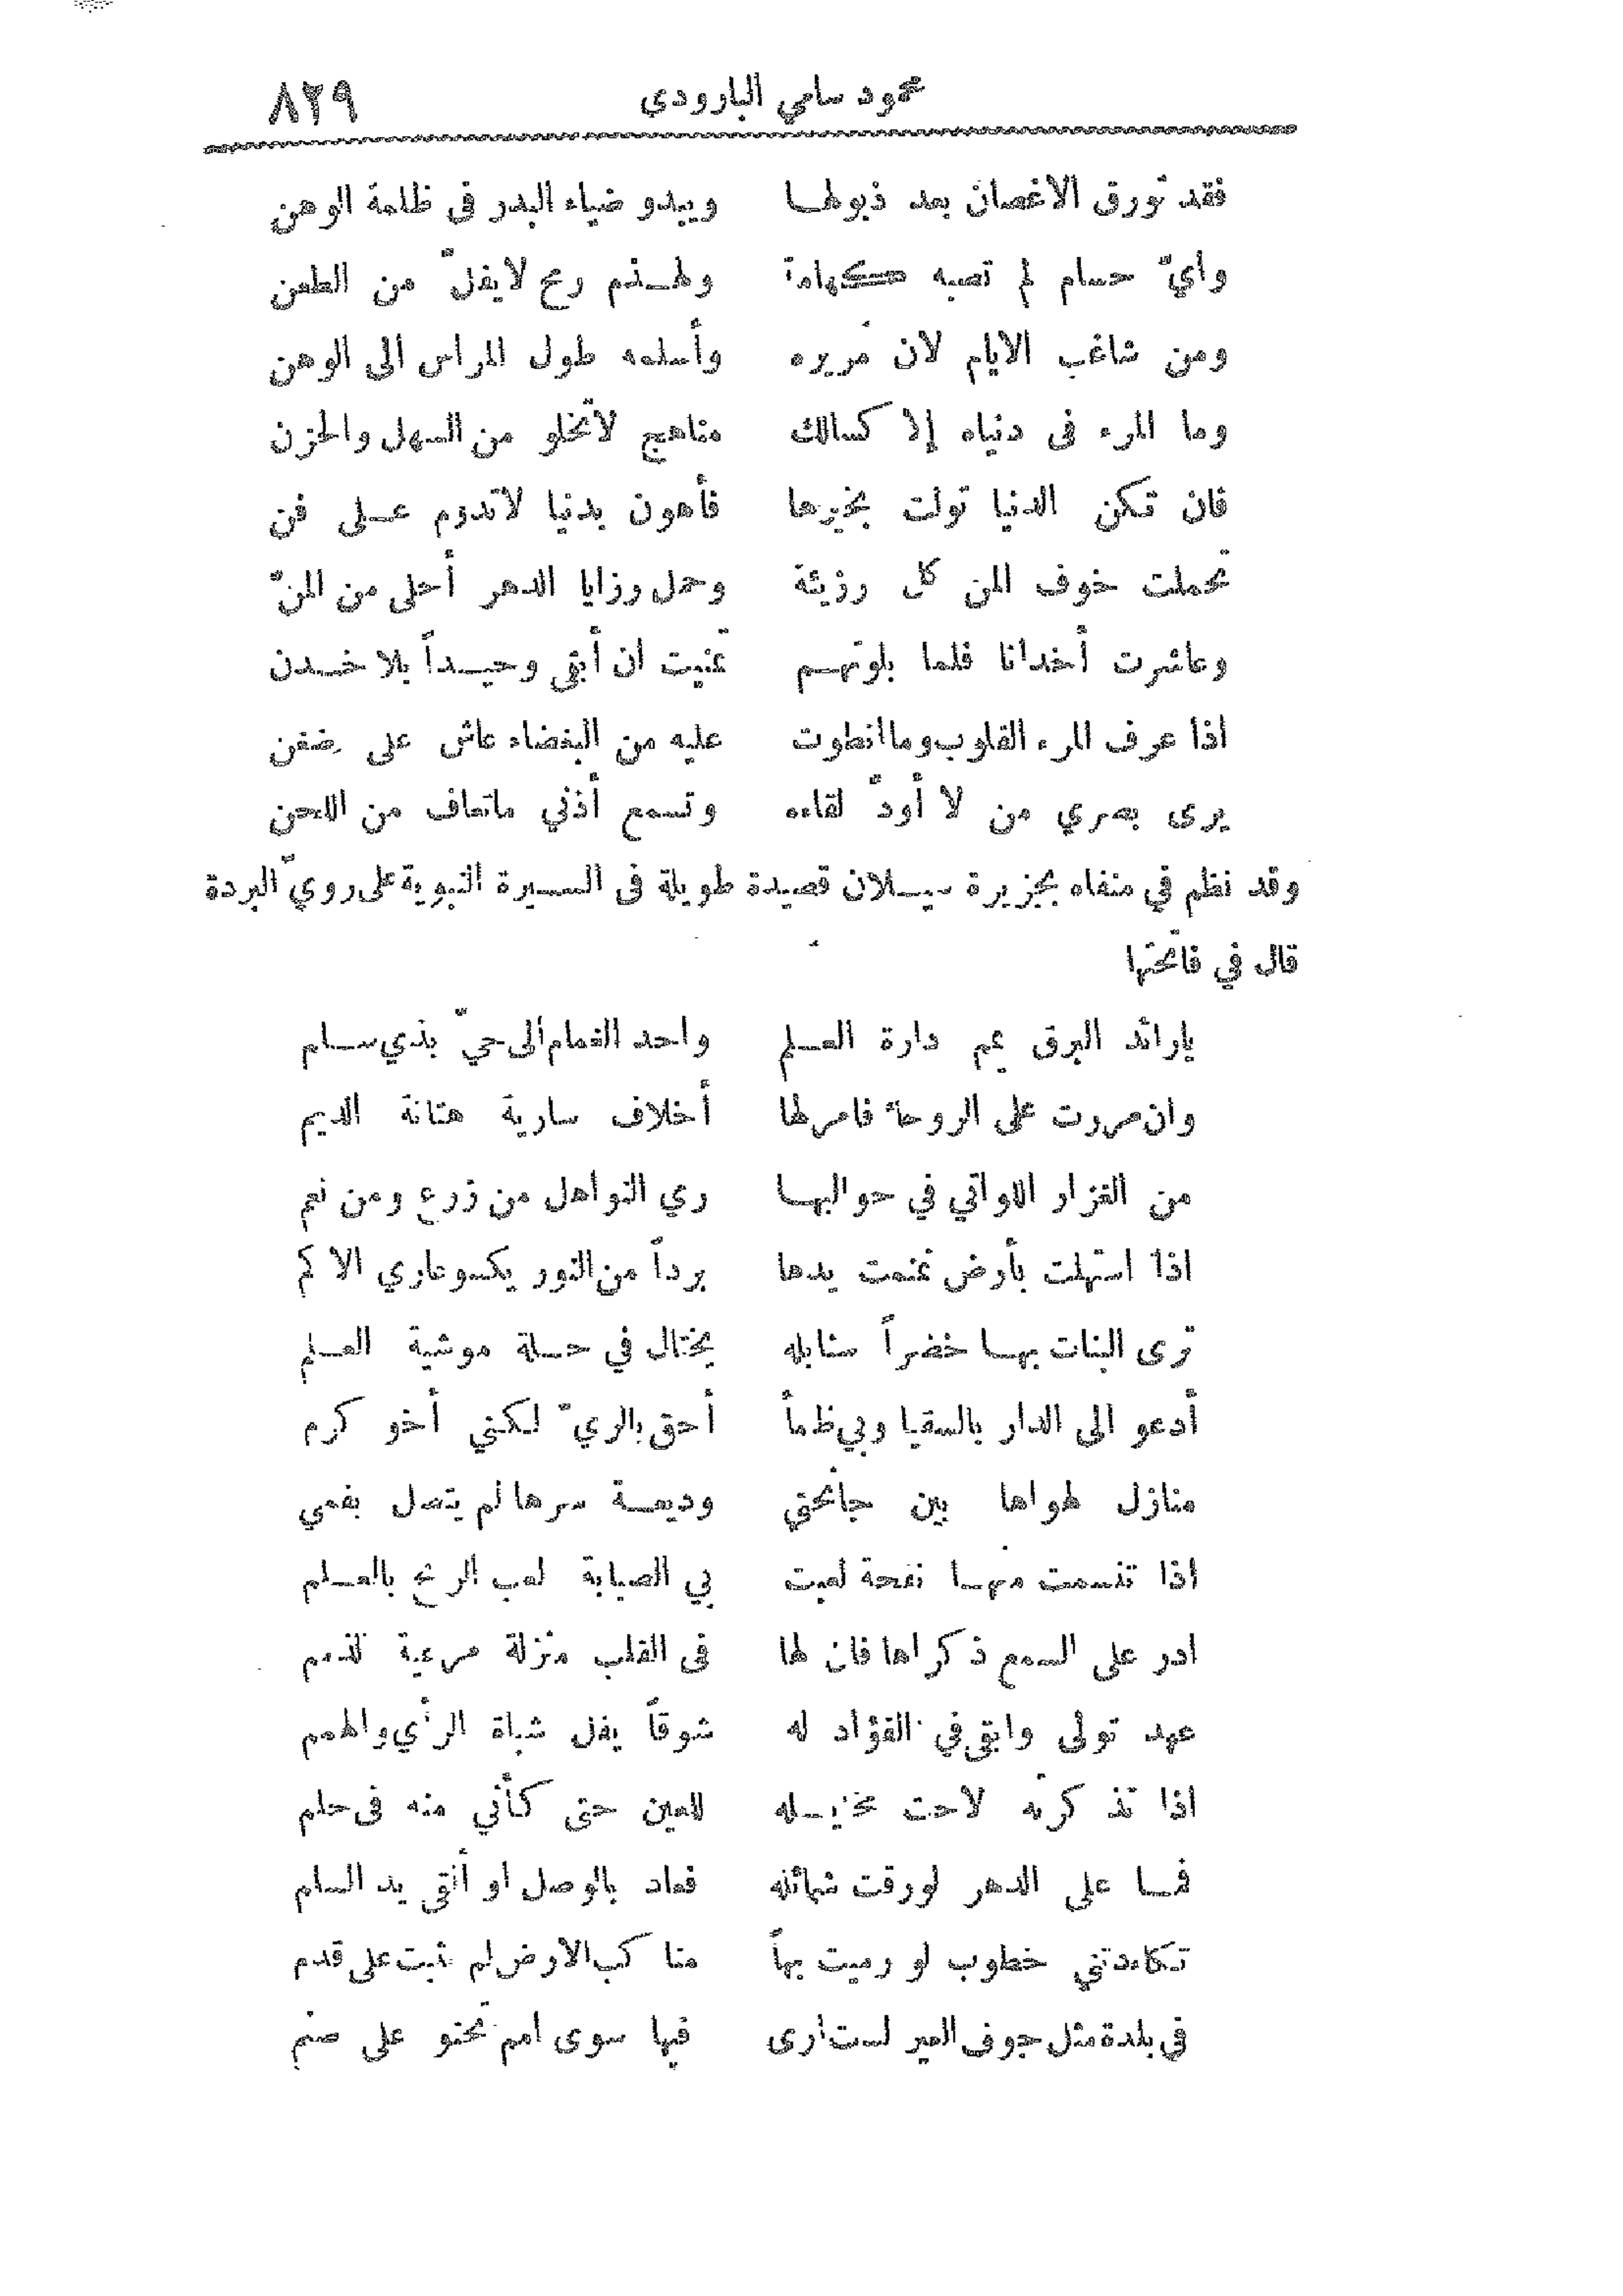 محمود سامي البارودى ٨٢٩
فقد تورق الاغصان بعد ذبولها ويبدو ضياء البدر فى ظلمة الوهن
وأيّ حسام لم تصبه كهامة ولهذم رمح لايفلّ من الطعن
ومن شاغب الايام لان مَريره وأسلمه طول المراس الى الوهن
وما المرء فى دنياه إلا كسالك مناهج لاتخلو من السهل والحزن
فان تكن الدنيا تولت بخيرها فأهون بدنيا لاتدوم على فن
تحملت خوف المن كل رزيئة وحمل رزايا الدهر أحلى من المنّ
وعاشرت أخدانا فلما بلوتهم تمنيت ان أبقى وحيداً بلا خدن
اذا عرف المرء القلوب وما انطوت عليه من البغضاء عاش على ضغن
يرى بصري من لا أودّ لقاءه وتسمع أذني ماتعاف من اللحن
وقد نظم في منفاه بجزيرة سيلان قصيدة طويلة فى السيرة النبوية على رويّ البردة
قال في فاتحتها
يارائد البرق يمم دارة العلم واحد الغمام الى حيّ بذي سلم
وان مررت على الروحاء فامر لها أخلاف سارية هتانة الديم
من الغزار اللواتي في حوالبها ري النواهل من زرع ومن نعم
اذا استهلت بأرض نمنمت يدها برداً من النور يكسو عاري الاكم
ترى النبات بها خضراً سنابله يختال في حلة موشية العلم
أدعو الى الدار بالسقيا وبي ظمأ أحق بالريّ لكني أخو كرم
منازل لهواها بين جانحتي وديعة سرها لم يتصل بفمي
اذا تنسمت منها نفحة لعبت بي الصبابة لعب الريح بالعلم
ادر على السمع ذكراها فان لها فى القلب منزلة مرعية الذمم
عهد تولى وابقى في الفؤاد له شوقاً يفل شباة الرأي والهمم
اذا تذكرته لاحت مخايله للعين حتى كأني منه فى حلم
فما على الدهر لورقت شمائله فعاد بالوصل او أنقى يد السلم
تكاءدتني خطوب لو رميت بهاً مناكب الارض لم تثبت على قدم
في بلدة مثل جوف العير لست أرى فيها سوى امم تحنو على صنم